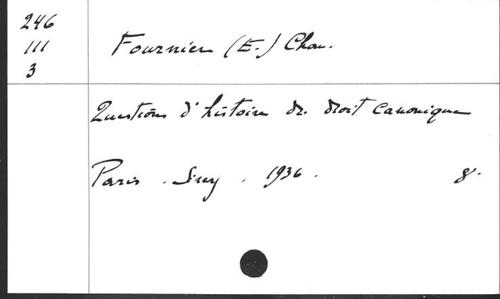 246
111
3
Fournier (E.) Chan.
Questions d'histoire de droit canonique
Paris . Sirey . 1936 . 8°